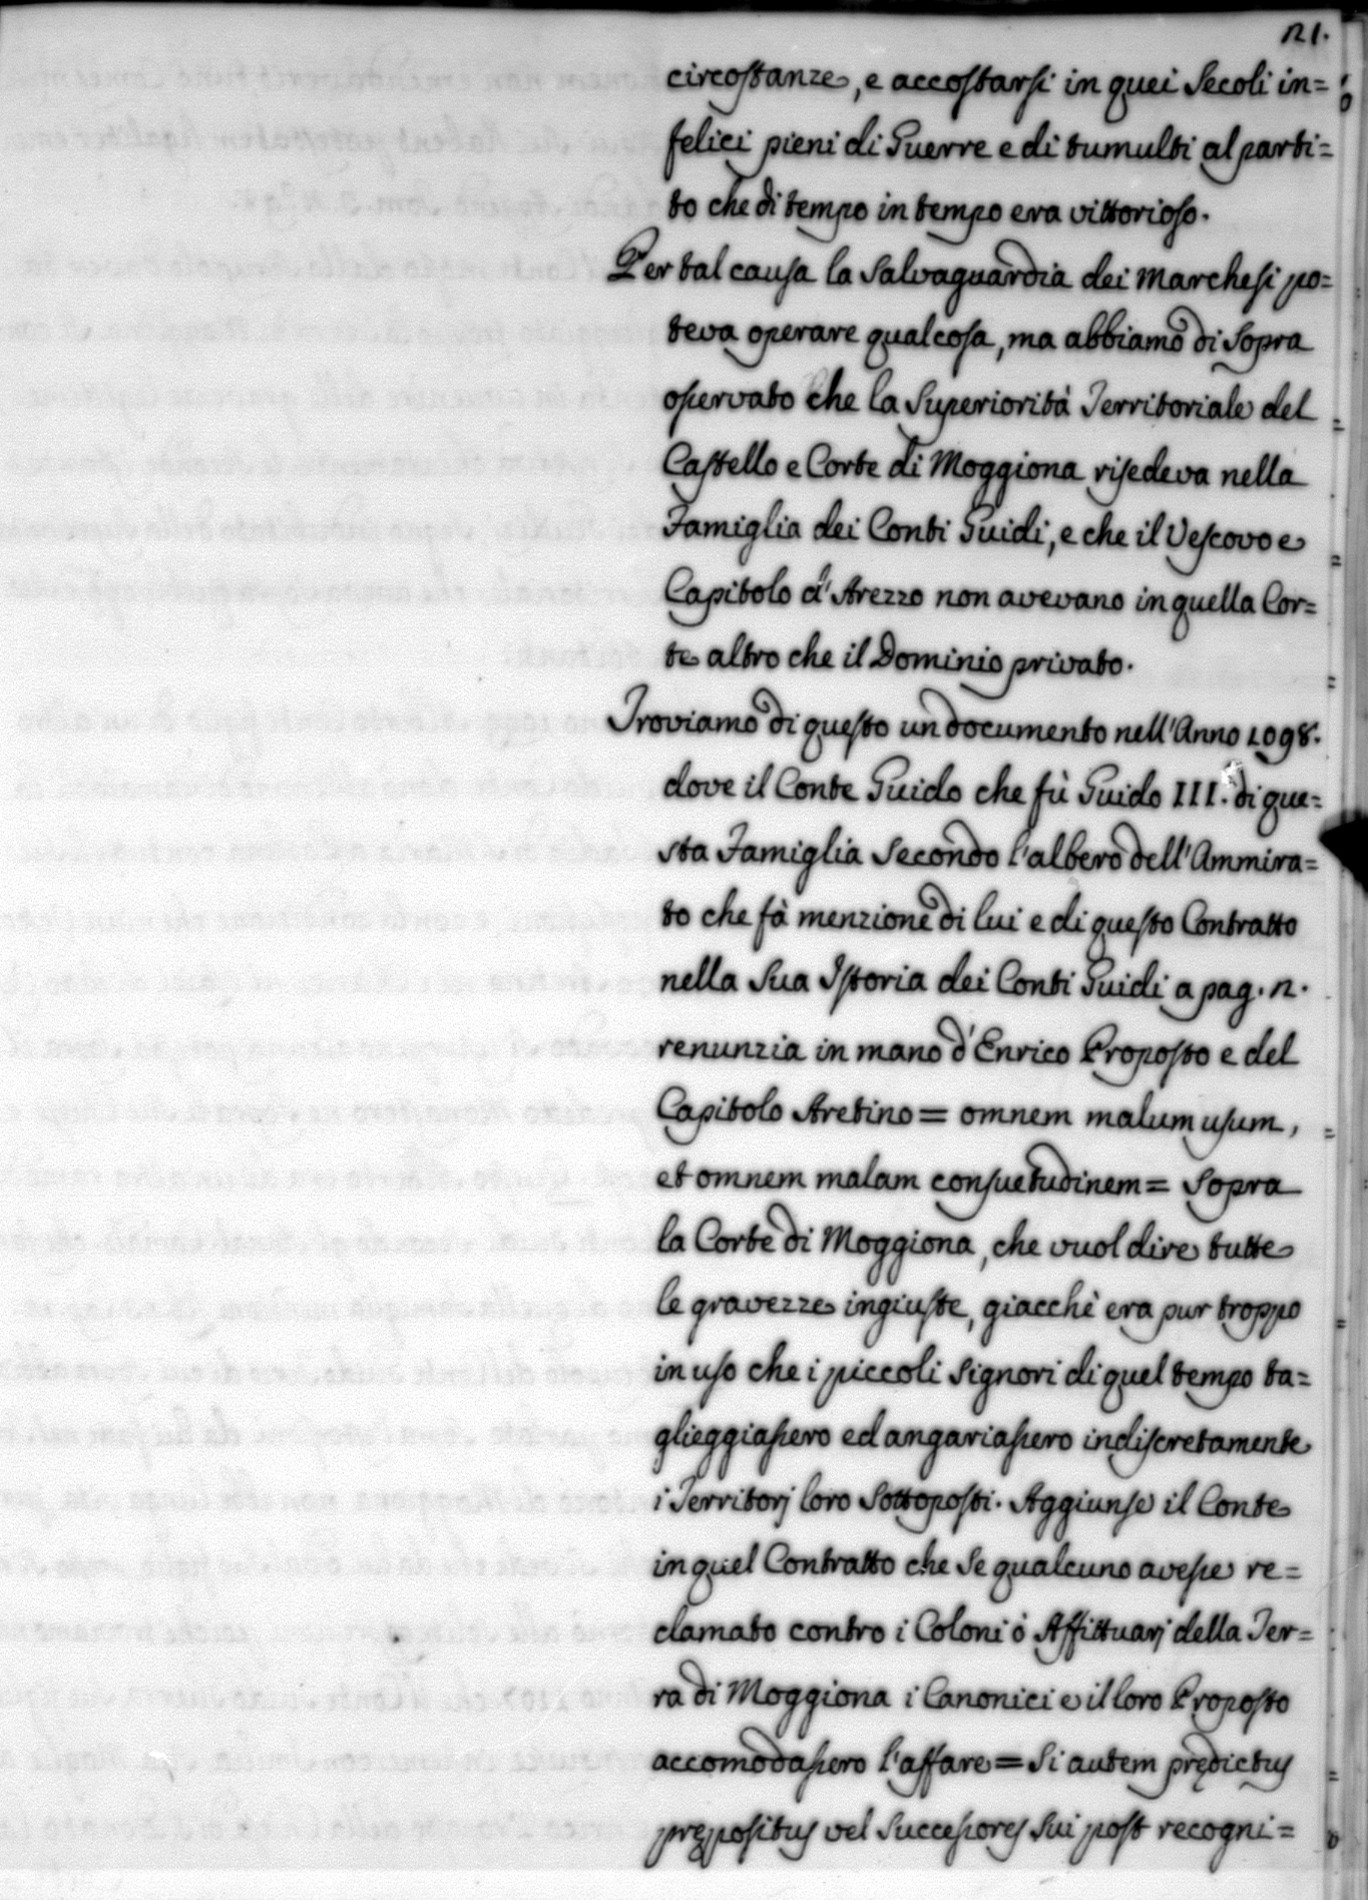 21.
circostanze, e accostarsi in quei Secoli in=
felici pieni di Guerre e di tumulti al parti=
to che di tempo in tempo era vittorioso.
Per tal causa la Salvaguardia dei Marchesi po=
teva operare qualcosa, ma abbiamo di Sopra
osservato che la Superiorità Territoriale del
Castello e Corte di Moggiona risedeva nella
Famiglia dei Conti Guidi, e che il Vescovo e
Capitolo d'Arezzo non avevano in quella Cor=
te altro che il Dominio privato.
Troviamo di questo un documento nell'Anno 1098.
dove il Conte Guido che fù Guido III. di que=
sta Famiglia Secondo l'albero dell'Ammira=
to che fà menzione di lui e di questo Contratto
nella Sua Istoria dei Conti Guidi a pag. 2.
renunzia in mano d'Enrico Proposto e del
Capitolo Aretino = omnem malum usum,
et omnem malam consuetudinem = Sopra
la Corte di Moggiona, che vuol dire tutte
le gravezze ingiuste, giacchè era pur troppo
in uso che i piccoli Signori di quel tempo ta=
glieggiassero ed angariassero indiscretamente
i Territorj loro Sottoposti. Aggiunse il Conte
in quel Contratto che Se qualcuno avesse re=
clamato contro i Coloni ò Affittuarj della Ter=
ra di Moggiona i Canonici e il loro Proposto
accomodassero l'affare = Si autem prędictus
prępositus vel Successores Sui post recogni=